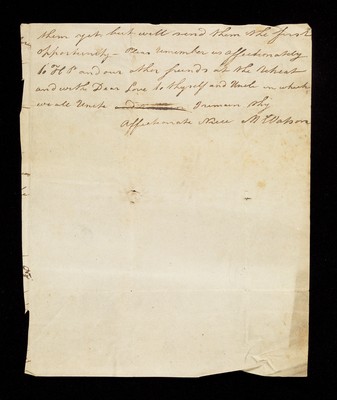 them yet but will send them the first
opportunity – Please remember us affectionately
to H S and our other friends at the Retreat
and with Dear Love to thyself and Uncle in which
we all Unite I remain thy
Affectionate Niece M Watson